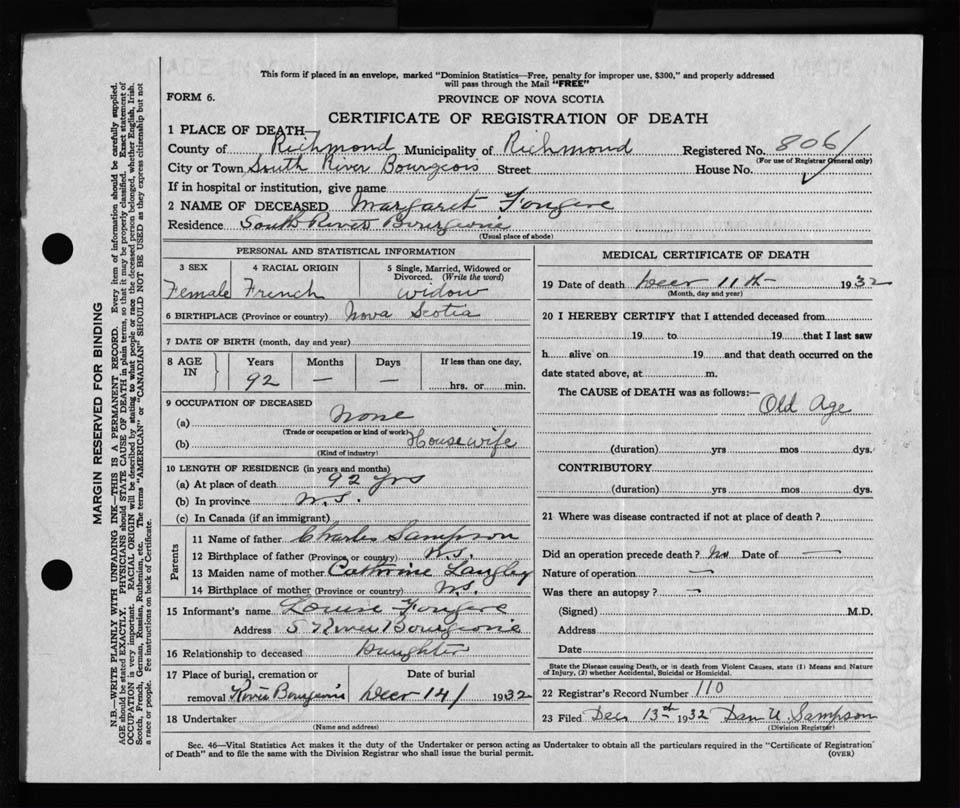 This form if placed in an envelope, marked "Dominion Statistics—Free, penalty for improper use, $300," and properly addressed
will pass through the Mail "FREE"
FORM 6.
PROVINCE OF NOVA SCOTIA
CERTIFICATE OF REGISTRATION OF DEATH
1 PLACE OF DEATH—
County of Richmond Municipality of Richmond Registered No. 806
(For use of Registrar General only)
City or Town South River Bourgeois Street House No.
If in hospital or institution, give name
2 NAME OF DECEASED Margaret Fougere
Residence South River Bourgeois
(Usual place of abode)
PERSONAL AND STATISTICAL INFORMATION
3 SEX 4 RACIAL ORIGIN 5 Single, Married, Widowed or
Divorced. (Write the word)
Female French widow
6 BIRTHPLACE (Province or country) Nova Scotia
7 DATE OF BIRTH (month, day and year)
8 AGE IN Years Months Days If less than one day,
92 — — hrs. or min.
9 OCCUPATION OF DECEASED
(a) None
(Trade or occupation or kind of work)
(b) Housewife
(Kind of industry)
10 LENGTH OF RESIDENCE (in years and months)
(a) At place of death 92 yrs
(b) In province N.S.
(c) In Canada (if an immigrant)
Parents
11 Name of father Charles Sampson
12 Birthplace of father (Province or country) N.S.
13 Maiden name of mother Catherine Langley
14 Birthplace of mother (Province or country) N.S.
15 Informant's name Louise Fougere
Address S River Bourgeois
16 Relationship to deceased Daughter
17 Place of burial, cremation or Date of burial
removal River Bourgeois Decr 14/ 1932
18 Undertaker
(Name and address)
MEDICAL CERTIFICATE OF DEATH
19 Date of death Decr 11th 1932
(Month, day and year)
20 I HEREBY CERTIFY that I attended deceased from
19 to 19 that I last saw
h alive on 19 and that death occurred on the
date stated above, at m.
The CAUSE OF DEATH was as follows:—
Old Age
(duration) yrs mos dys.
CONTRIBUTORY
(duration) yrs mos dys.
21 Where was disease contracted if not at place of death?
Did an operation precede death? No Date of —
Nature of operation —
Was there an autopsy? —
(Signed) M.D.
Address
Date
State the Disease causing Death, or in death from Violent Causes, state (1) Means and Nature
of Injury, (2) whether Accidental, Suicidal or Homicidal.
22 Registrar's Record Number 110
23 Filed Dec 13th 1932 Dan U. Sampson
(Division Registrar)
Sec. 46—Vital Statistics Act makes it the duty of the Undertaker or person acting as Undertaker to obtain all the particulars required in the "Certificate of Registration
of Death" and to file the same with the Division Registrar who shall issue the burial permit.
(OVER)
MARGIN RESERVED FOR BINDING
N.B.—WRITE PLAINLY WITH UNFADING INK—THIS IS A PERMANENT RECORD. Every item of information should be carefully supplied.
AGE should be stated EXACTLY. PHYSICIANS should STATE CAUSE OF DEATH in plain terms, so that it may be properly classified. Exact statement of
OCCUPATION is very important. RACIAL ORIGIN will be described by stating to what people or race the deceased person belonged, whether English, Irish,
Scotch, French, German, Russian, Ruthenian, etc. The terms "AMERICAN" or "CANADIAN" SHOULD NOT BE USED as they express citizenship but not
a race or people. Fee instructions on back of Certificate.